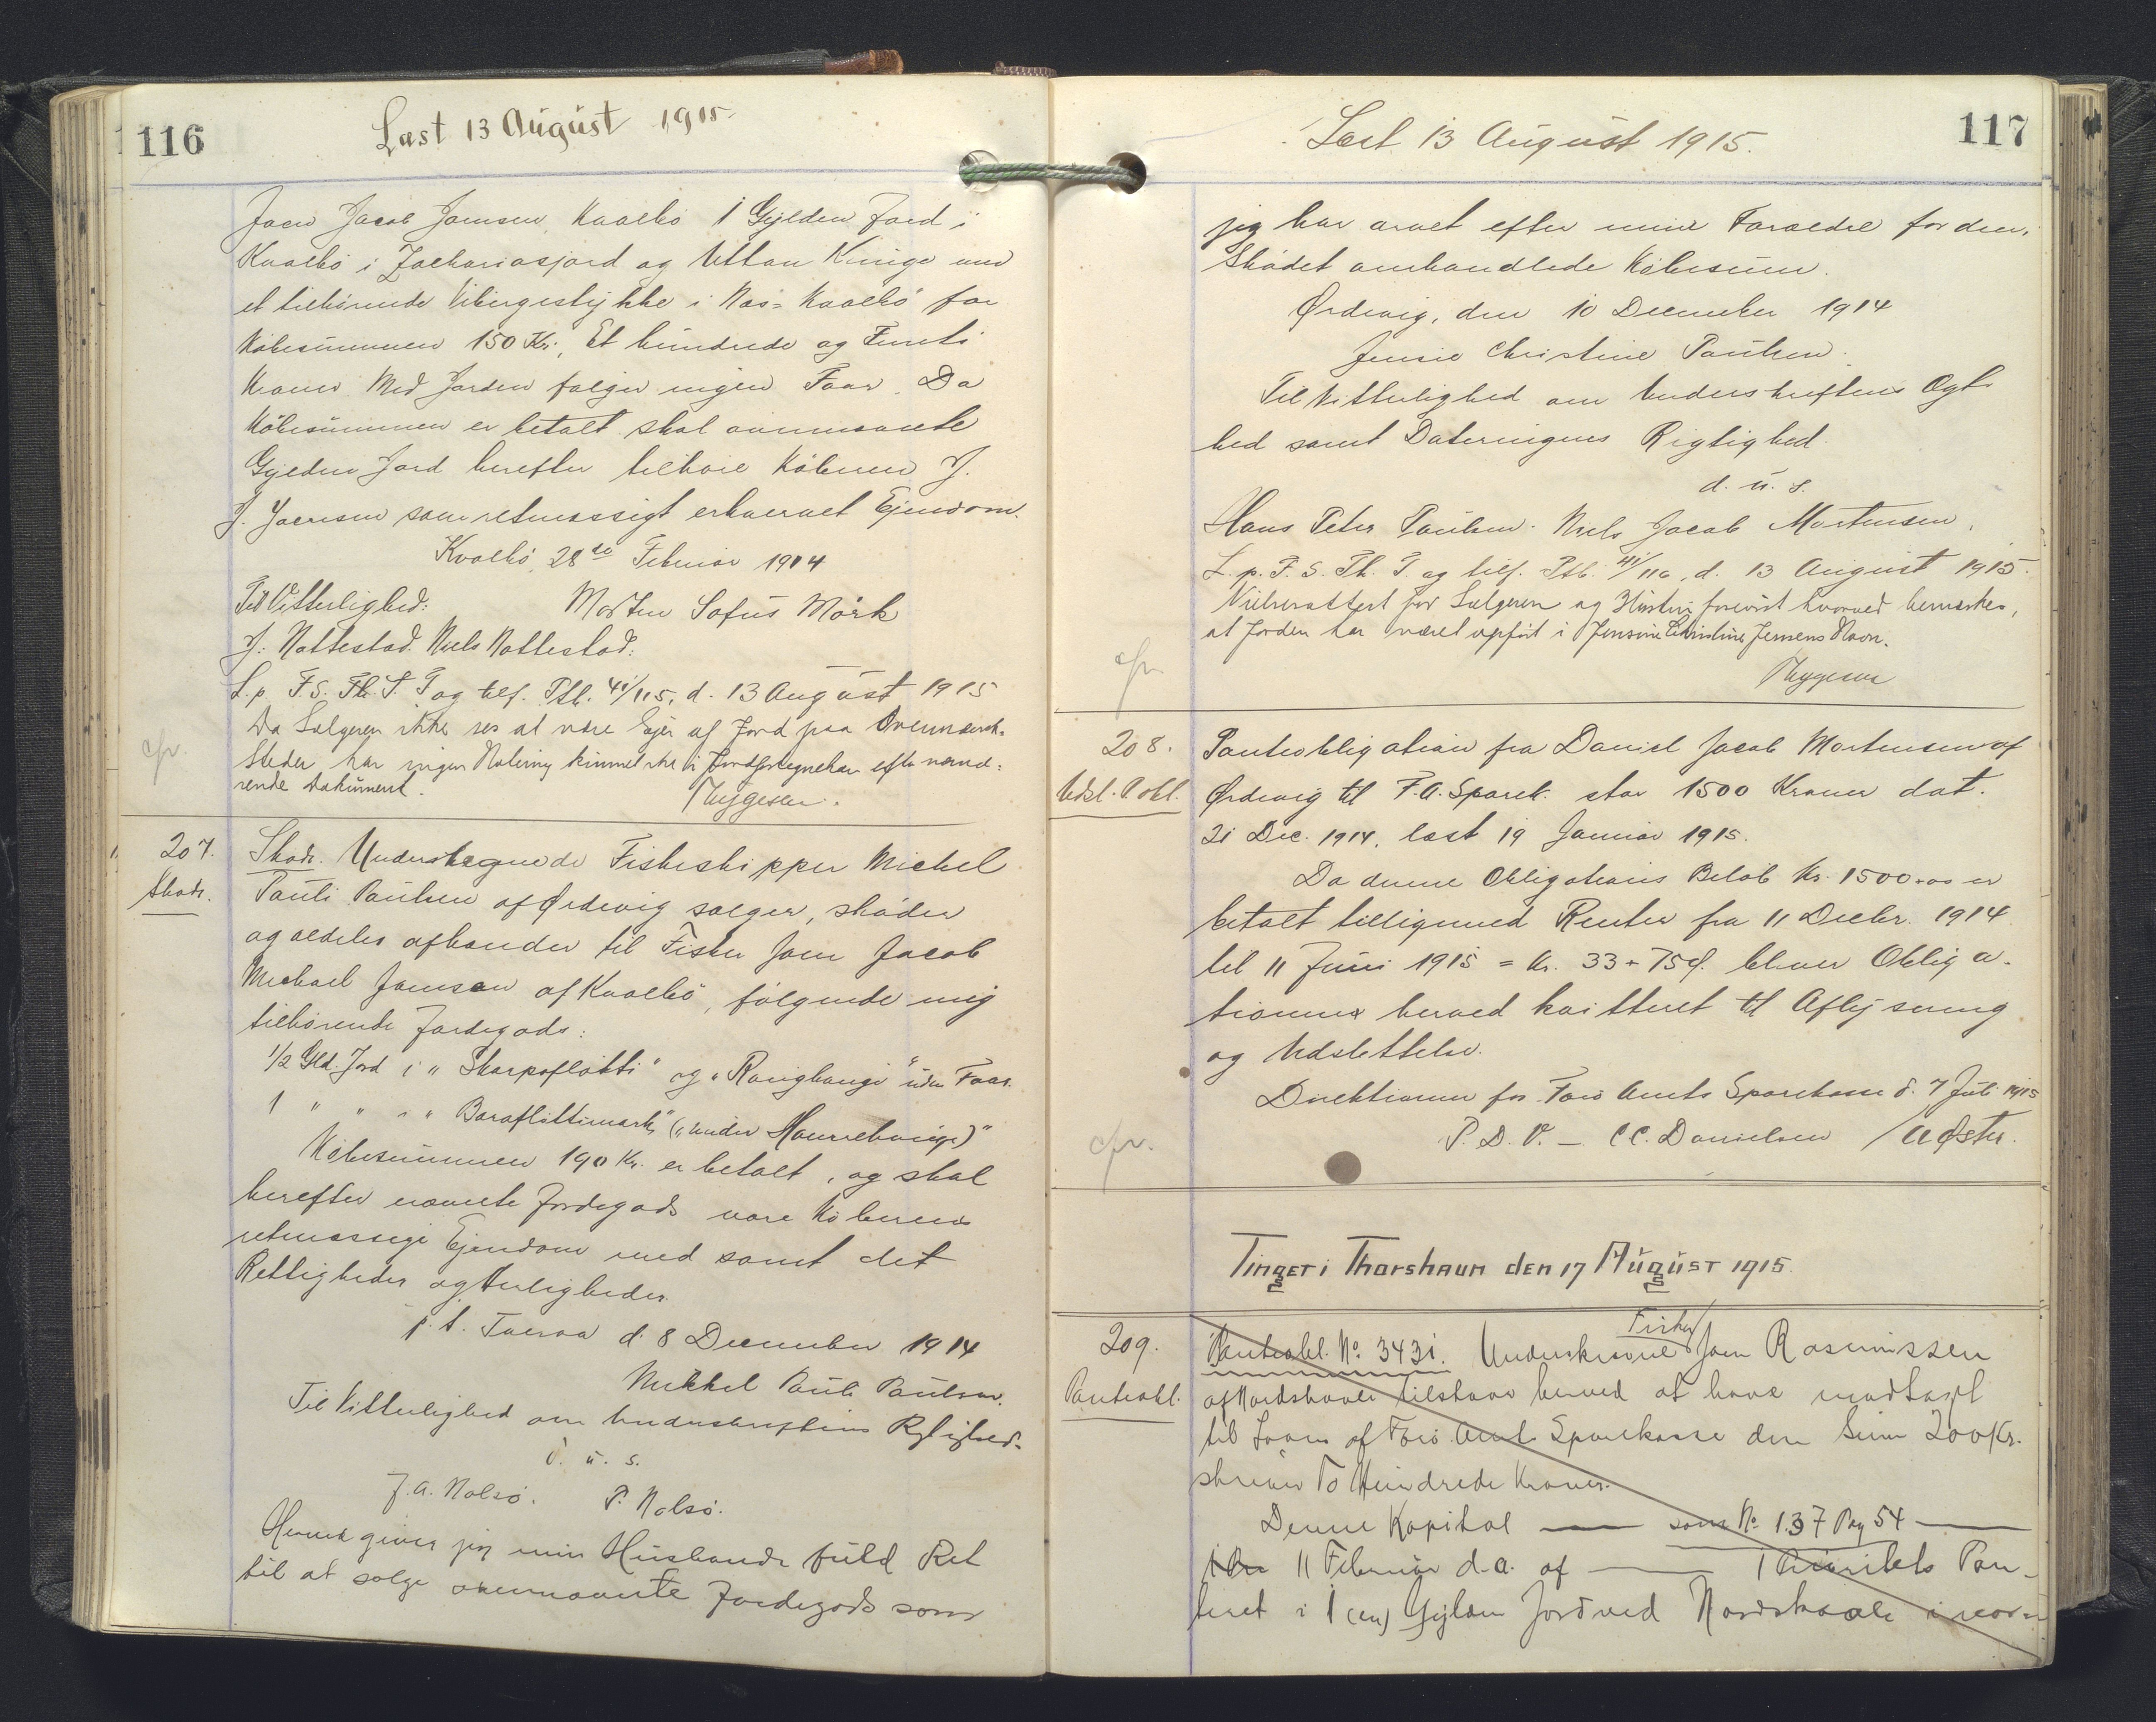 116
Læst 13 August 1915
Joen Jacob Joensen, Kvalbö 1 Gylden Jord i
Kvalbö i Zachariasjord og Uttan Kinge med
et tilhörende Ubingestykke i Nes=Kvalbö for
Köbesummen 150 Kr., Et hundrede og Femti
Kroner. Med Jorden følger ingen Faar. Da
Köbesummen er betalt skal ovennævnte
Gylden Jord herefter tilhøre Köberen J.
J. Joensen som retmæssigt erhvervet Ejendom.
Kvalbö, 28de Februar 1914
Til Vitterlighed: Morten Sofus Mörk
J. Nattestad. Niels Nattestad.
L. p. F. S. Th. T. og tilf. Ptb. 41/115, d. 13 August 1915
Da Sælgeren ikke ses at være Ejer af Jord paa Ovennævnte
Steder, har ingen Notering kunnet ske i Jordfortegnelsen efter nærvæ=
rende Dokument.
Thygesen.
cfr.
207.
Skøde.
Skøde. Undertegnede Fiskeskipper Mickel
Pauli Paulsen af Ørdevig sælger, skøder
og aldeles afhænder til Fisker Joen Jacob
Michael Joensen af Kvalbö, følgende mig
tilhørende Jordegods:
1/2 Gld. Jord i "Skarpaflötti" og "Ranghangi" uden Faar.
1 " " " " Baraflöttimark" ("under Hamrebunge)"
Köbesummen 190 Kr. er betalt, og skal
herefter nævnte Jordegods være Köberens
retmæssige Ejendom med samt det
Rettigheder og Herligheder.
p. t. Tveraa d. 8 December 1914
Mikkel Pauli Paulsen.
Til Vitterlighed om Underskriftens Rigtighed.
d. u. s.
J. A. Nolsö. P. Nolsö.
Hermed giver jeg min Husbonde fuld Ret
til at sælge ovennævnte Jordegods som
117
Læst 13 August 1915.
jeg har arvet efter mine Forældre for den i
Skødet omhandlede Købesum.
Ørdevig, den 10 December 1914
Jensie Christine Paulsen.
Til Vitterlighed om Underskriftens Ægt=
hed samt Dateringens Rigtighed.
d. u. s.
Hans Peter Paulsen. Niels Jacob Mortensen.
L. p. F. S. Th. T. og tilf. Ptb. 41/116, d. 13 August 1915.
Vielsesattest for Sælgeren og Hustru forevist hvorved bemærkes,
at Jorden har været opført i Jensine Christine Jensens Navn.
Thygesen
cfr.
208.
Udsl. P. obl.
Panteobligation fra Daniel Jacob Mortensen af
Ørdevig til F. A. Sparek. stor 1500 Kroner dat.
21 Dec. 1914, læst 19 Januar 1915.
Da denne Obligations Beløb Kr. 1500.00 er
betalt tilligemed Renter fra 11 Decbr. 1914
til 11 Juni 1915 = Kr. 33 - 75 Ø. bliver Obliga=
tionen herved kvitteret til Aflysning
og Udslettelse.
Direktionen for Færø Amts Sparekasse d. 7 Juli 1915
P. D. V. — C C. Danielsen / Müster.
cfr.
Tinget i Thorshavn den 17 August 1915.
209.
Panteobl.
Panteobl. No. 3431. Underskrevne Fisker Joen Rasmussen
af Nordskaale tilstaar herved at have modtaget
til Laans af Færø Amts Sparekasse den Sum 200 Kr.
skriver To Hundrede Kroner.
Denne Kapital — som No. 137 Pag 54 —
11 Februar d. a. af — 1 Prioritets Pan=
teret i 1 (en) Gylden Jord ved Nordskaale i nor=